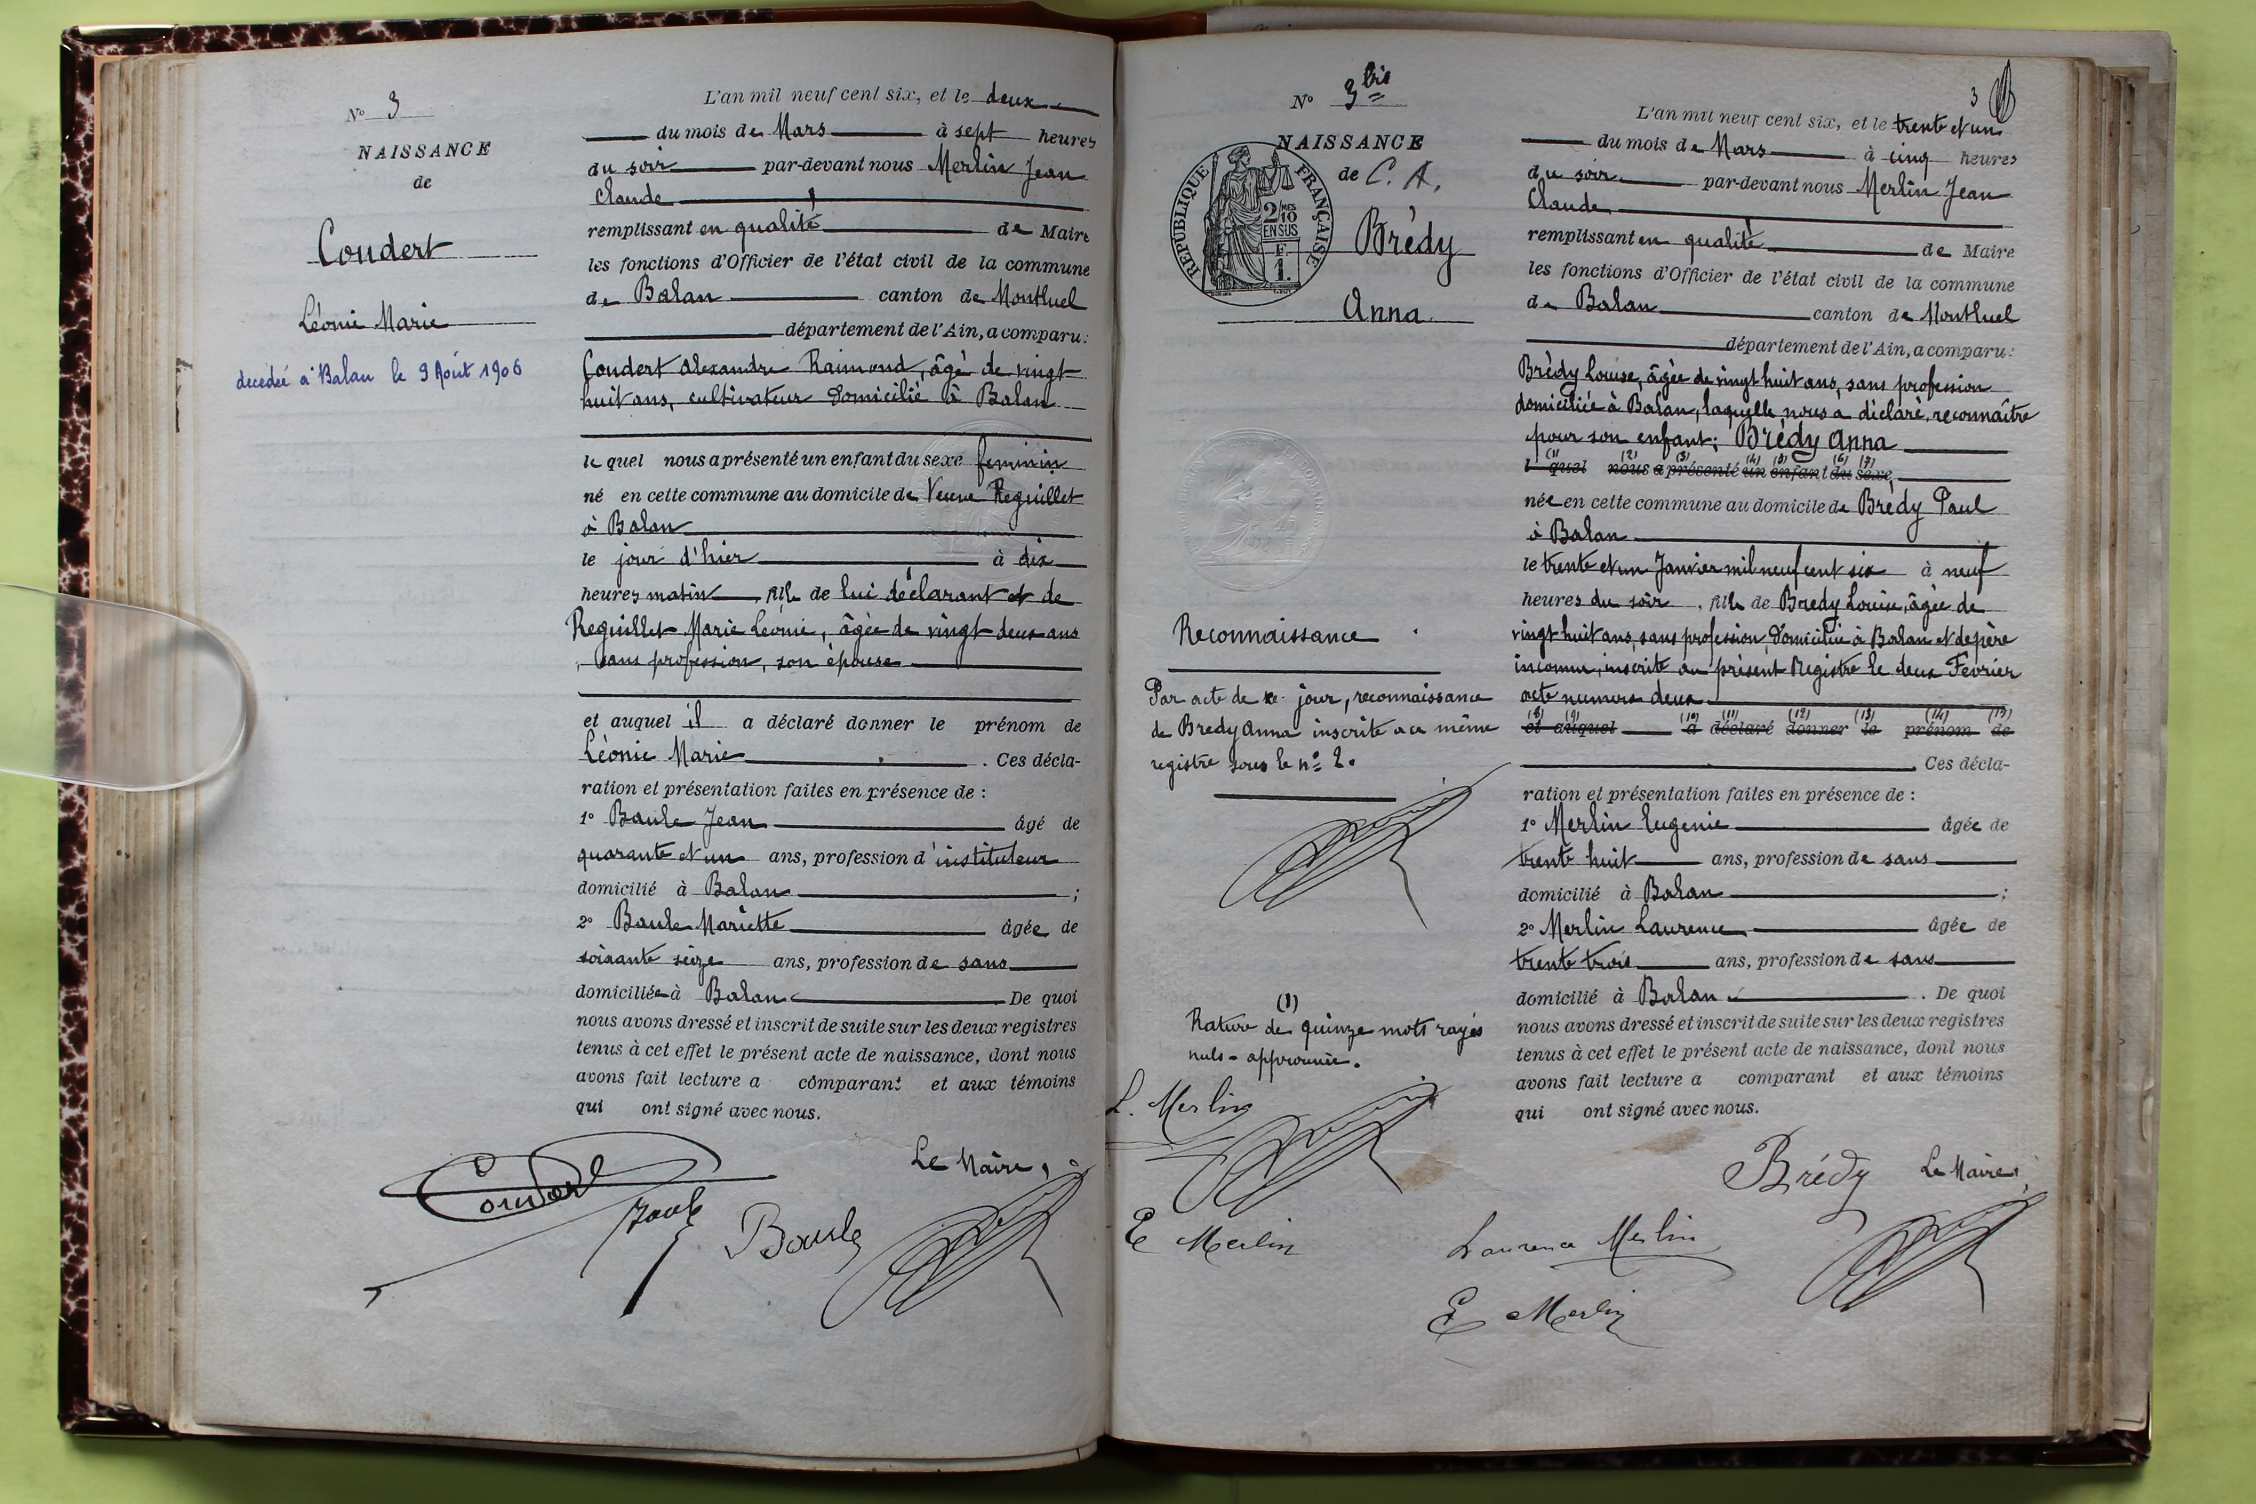 N° 3
NAISSANCE
de
Coudert
Léonie Marie
decedée à Balan le 9 Août 1906
L'an mil neuf cent six, et le deux
du mois de Mars à sept heures
du soir par-devant nous Merlin Jean
Claude
remplissant en qualité de Maire
les fonctions d'Officier de l'état civil de la commune
de Balan canton de Montluel
département de l'Ain, a comparu:
Coudert Alexandre Raimond, âgé de vingt
huit ans, cultivateur domicilié à Balan
le quel nous a présenté un enfant du sexe feminin
né en cette commune au domicile de Veuve Reguillet
à Balan
le jour d'hier à dix
heures matin, fille de lui déclarant et de
Reguillet Marie Léonie, âgée de vingt deux ans
, sans profession, son épouse
et auquel il a déclaré donner le prénom de
Léonie Marie. Ces décla-
ration et présentation faites en présence de :
1° Baule Jean âgé de
quarante et un ans, profession d'instituteur
domicilié à Balan ;
2° Baule Mariette âgée de
soixante seize ans, profession de sans
domiciliée à Balan De quoi
nous avons dressé et inscrit de suite sur les deux registres
tenus à cet effet le présent acte de naissance, dont nous
avons fait lecture a comparant et aux témoins
qui ont signé avec nous.
Le Maire,
Coudert
Baule
N° 3 bis
NAISSANCE
de C. A.
RÉPUBLIQUE FRANÇAISE
2/10
EN SUS
F.
1.
Brédy
Anna
Reconnaissance
Par acte de ce jour, reconnaissance
de Bredy Anna inscrite a ce même
registre sous le n° 2.
(1)
Rature de quinze mots rayés
nuls - approuvée.
L. Merlin
E Merlin
3
L'an mil neuf cent six, et le trente et un
du mois de Mars à cinq heures
du soir par-devant nous Merlin Jean
Claude
remplissant en qualité de Maire
les fonctions d'Officier de l'état civil de la commune
de Balan canton de Montluel
département de l'Ain, a comparu:
Brédy Louise, âgée de vingt huit ans, sans profession
domiciliée à Balan, laquelle nous a déclaré reconnaître
pour son enfant: Brédy Anna
(1) (2) (3) (4) (5) (6) (7)
l quel nous a présenté un enfant du sexe,
née en cette commune au domicile de Brédy Paul
à Balan
le trente et un Janvier mil neuf cent six à neuf
heures du soir. fille de Bredy Louise, âgée de
vingt huit ans, sans profession, domiciliée à Balan et de père
inconnu, inscrite au présent Registre le deux Fevrier
acte numero deux
(8) (9) (10) (11) (12) (13) (14) (15)
et auquel a déclaré donner le prénom de
. Ces décla-
ration et présentation faites en présence de :
1° Merlin Eugenie âgée de
trente huit ans, profession de sans
domicilié à Balan ;
2° Merlin Laurence âgée de
trente trois ans, profession de sans
domicilié à Balan. De quoi
nous avons dressé et inscrit de suite sur les deux registres
tenus à cet effet le présent acte de naissance, dont nous
avons fait lecture a comparant et aux témoins
qui ont signé avec nous.
Brédy Le Maire,
Laurence Merlin
E Merlin